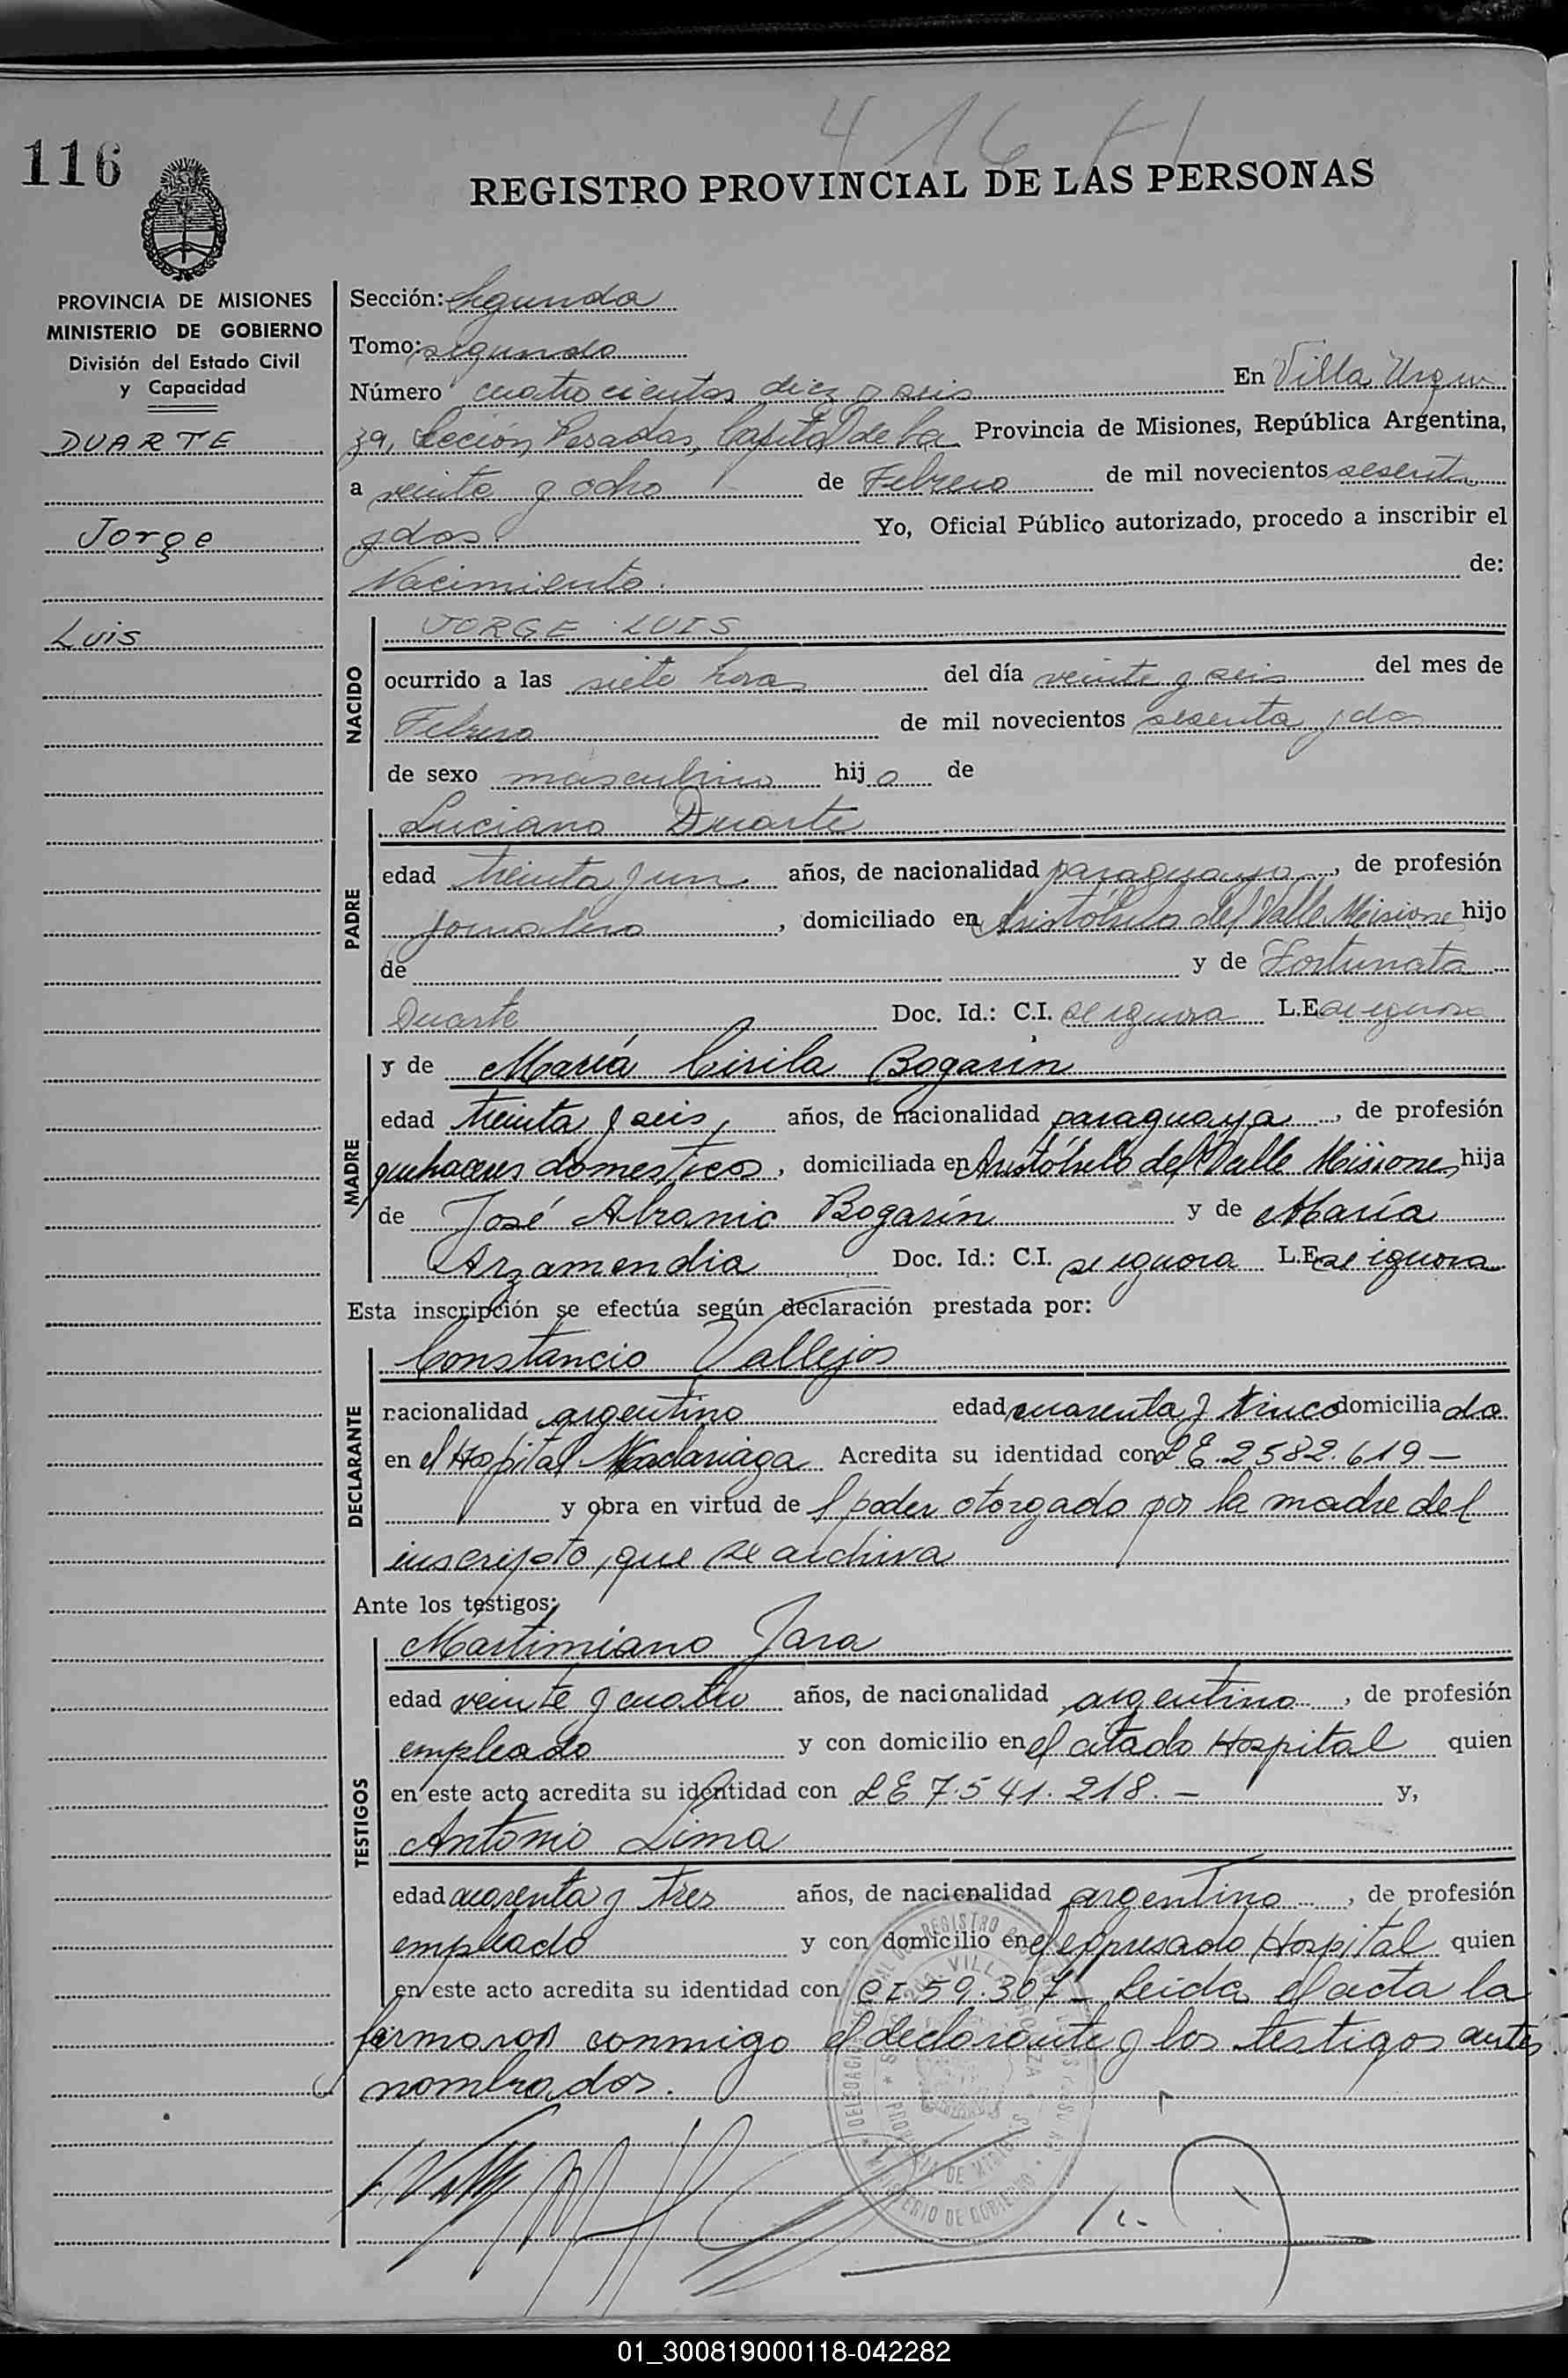 116
REGISTRO PROVINCIAL DE LAS PERSONAS
PROVINCIA DE MISIONES
MINISTERIO DE GOBIERNO
División del Estado Civil
y Capacidad
DUARTE
Jorge
Luis
Sección: Segunda
Tomo: segundo
Número cuatrocientos diez y seis En Villa Urqui
za, Sección Posadas, Capital de la Provincia de Misiones, República Argentina,
a veinte y ocho de Febrero de mil novecientos sesenta
y dos Yo, Oficial Público autorizado, procedo a inscribir el
Nacimiento. de:
NACIDO
JORGE LUIS
ocurrido a las siete horas del día veinte y seis del mes de
Febrero de mil novecientos sesenta y dos
de sexo masculino hijo de
PADRE
Luciano Duarte
edad treinta y un años, de nacionalidad paraguayo, de profesión
jornalero, domiciliado en Aristóbulo del Valle Misiones hijo
de y de Fortunata
Duarte Doc. Id.: C.I. se ignora L.E. se ignora
MADRE
y de María Cirila Bogarín
edad treinta y seis, años, de nacionalidad paraguaya, de profesión
quehaceres domesticos, domiciliada en Aristóbulo del Valle Misiones, hija
de José Bogarín y de María
Arzamendia Doc. Id.: C.I. se ignora L.E. se ignora
Esta inscripción se efectúa según declaración prestada por:
DECLARANTE
Constancio Vallejos
nacionalidad argentino edad cuarenta y cinco domiciliado
en el Hospital Madariaga Acredita su identidad con LE. 2582.619 —
y obra en virtud del poder otorgado por la madre del
inscripto, que se archiva
Ante los testigos:
TESTIGOS
Martimiano Jara
edad veinte y cuatro años, de nacionalidad argentino, de profesión
empleado y con domicilio en el citado Hospital quien
en este acto acredita su identidad con LE 7.541.218. — y,
Antonio Lima
edad cuarenta y tres años, de nacionalidad argentino, de profesión
empleado y con domicilio en el expresado Hospital quien
en este acto acredita su identidad con CI 59.307 — Leida el acta la
firmaron conmigo el declarante y los testigos antes
nombrados.
01_300819000118-042282